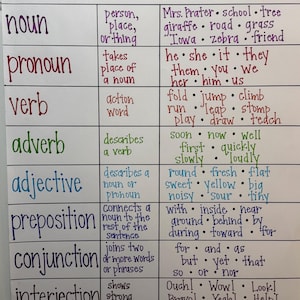 noun
person,
place,
or thing
Mrs. Prater • school • tree
giraffe • road • grass
Iowa • zebra • friend
pronoun
takes
place of
a noun
he • she • it • they
them • you • we
her • him • us
verb
action
word
fold • jump • climb
run • leap • stomp
play • draw • teach
adverb
describes
a verb
soon • now • well
first • quickly
slowly • loudly
adjective
describes a
noun or
pronoun
round • fresh • flat
sweet • yellow • big
noisy • sour • tiny
preposition
connects a
noun to the
rest of the
sentence
with • inside • near
around • behind • by
during • toward • for
conjunction
joins two
or more words
or phrases
for • and • as
but • yet • that
so • or • nor
interjection
shows
strong
Ouch! • Wow! • Look!